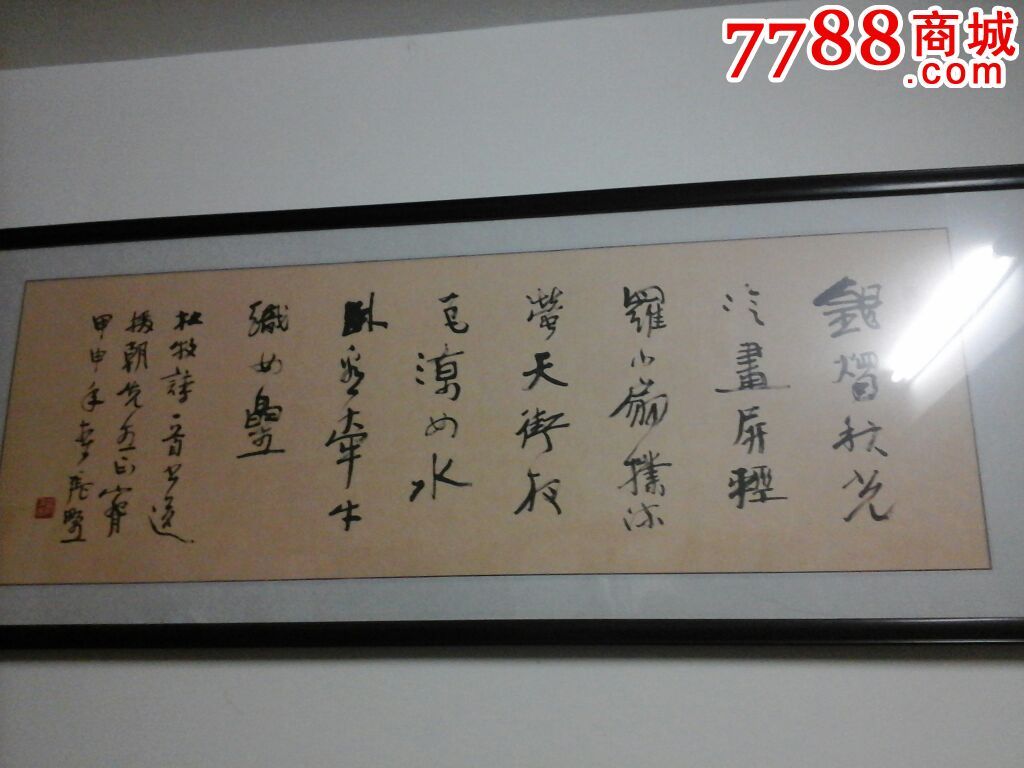 7788商城
.com
銀燭秋光
冷畫屏輕
羅小扇撲流
螢天街夜
色涼如水
臥看牽牛
織女星
杜牧詩一首書送
援朝先生正
甲申年春